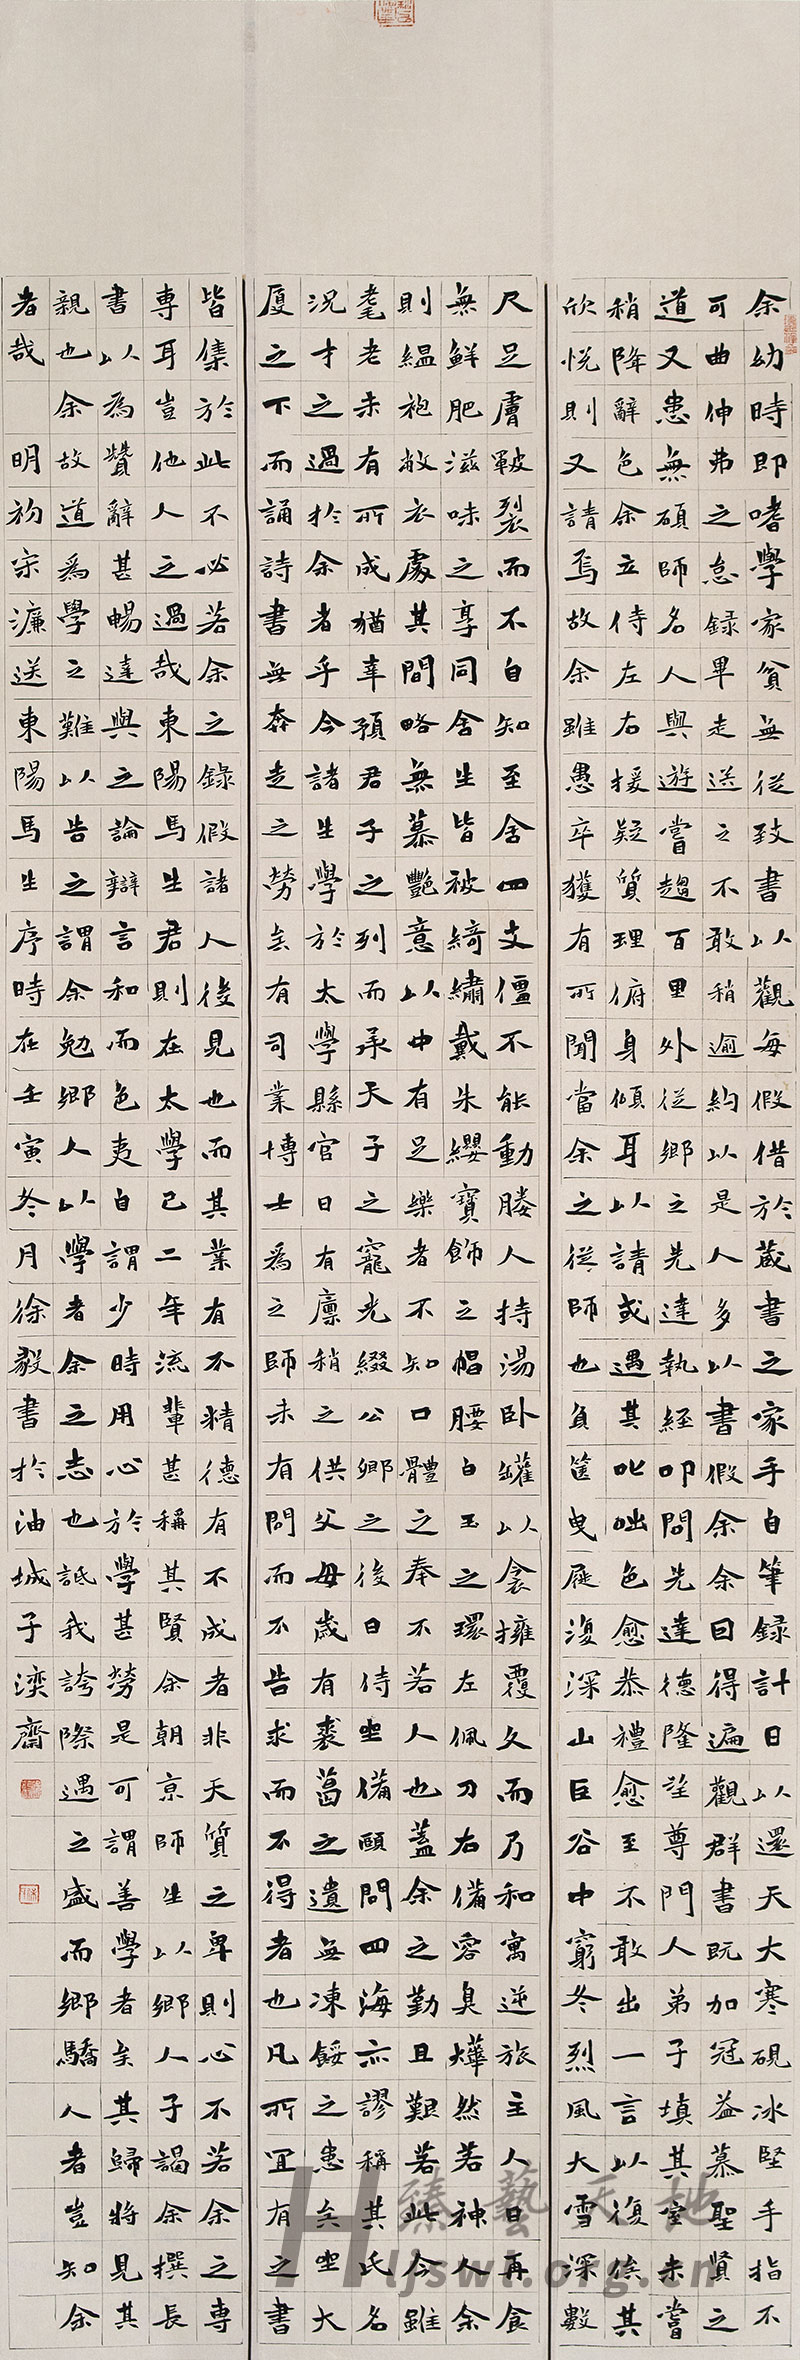 余幼時即嗜學家貧無從致書以觀每假借於藏書之家手自筆録計日以還天大寒硯冰堅手指不
可曲伸弗之怠録畢走送之不敢稍逾約以是人多以書假余余曰得遍觀群書既加冠益慕聖賢之
道又患無碩師名人與遊嘗趨百里外從鄉之先達執經叩問先達德隆望尊門人弟子填其室未嘗
稍降辭色余立侍左右援疑質理俯身傾耳以請或遇其叱咄色愈恭禮愈至不敢出一言以復俟其
欣悅則又請焉故余雖愚卒獲有所聞當余之從師也負篋曳屣復深山巨谷中窮冬烈風大雪深數
尺足膚皸裂而不自知至舍四支僵不能動媵人持湯卧罐以衾擁覆久而乃和寓逆旅主人日再食
無鮮肥滋味之享同舍生皆被綺繡戴朱纓寶飾之帽腰白玉之環左佩刀右備容臭燁然若神人余
則緼袍敝衣處其間略無慕艷意以中有足樂者不知口體之奉不若人也蓋余之勤且艱若此今雖
耄老未有所成猶幸預君子之列而承天子之寵光綴公卿之後日侍坐備顧問四海亦謬稱其氏名
況才之過於余者乎今諸生學於太學縣官日有廩稍之供父母歲有裘葛之遺無凍餒之患矣坐大
廈之下而誦詩書無奔走之勞矣有司業博士為之師未有問而不告求而不得者也凡所宜有之書
皆集於此不必若余之録假諸人後見也而其業有不精德有不成者非天質之卑則心不若余之專
專耳豈他人之過哉東陽馬生君則在太學已二年流輩甚稱其賢余朝京師生以鄉人子謁余撰長
書以為贄辭甚暢達與之論辯言和而色夷自謂少時用心於學甚勞是可謂善學者矣其歸將見其
親也余故道為學之難以告之謂余勉鄉人以學者余之志也詆我誇際遇之盛而鄉驕人者豈知余
者哉 明初宋濂送東陽馬生序時在壬寅冬月徐毅書於油城子灤齋
臻藝天地
Hljswj.org.cn